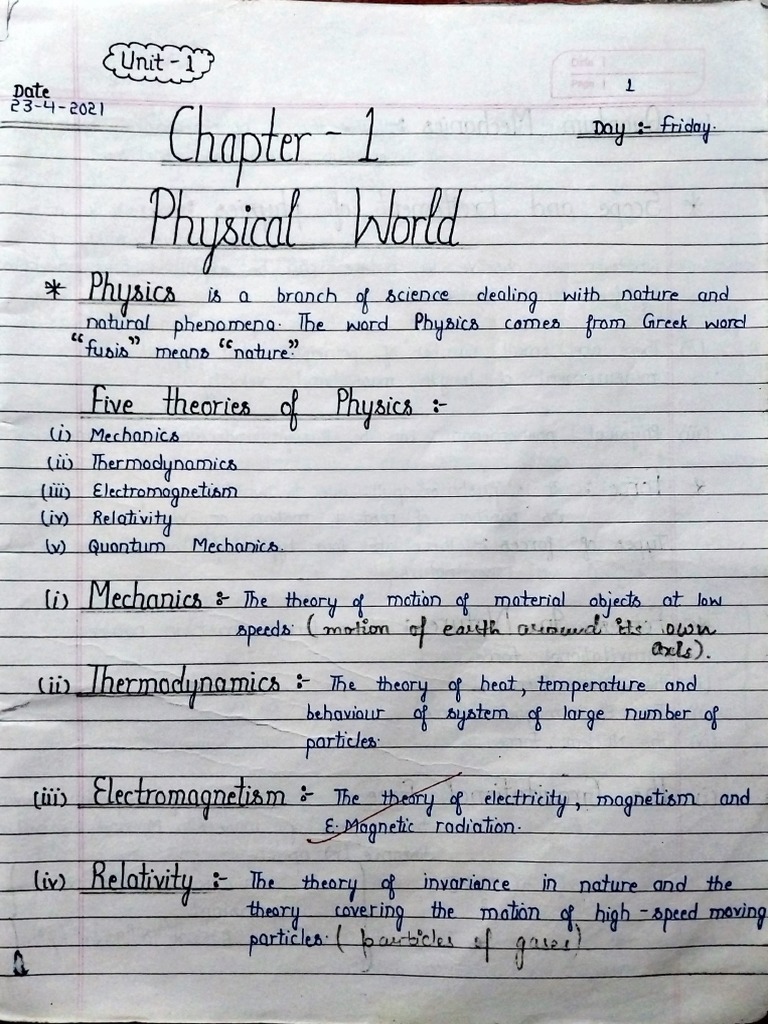 Unit-1
Date
23-4-2021
Date
Page
1
Day :- Friday.
Chapter - 1
Physical World
* Physics is a branch of science dealing with nature and
natural phenomena. The word Physics comes from Greek word
"fusis" means "nature".
Five theories of Physics :-
(i) Mechanics
(ii) Thermodynamics
(iii) Electromagnetism
(iv) Relativity
(v) Quantum Mechanics.
(i) Mechanics :- The theory of motion of material objects at low
speeds. (motion of earth around its own
axis).
(ii) Thermodynamics :- The theory of heat, temperature and
behaviour of system of large number of
particles.
(iii) Electromagnetism :- The theory of electricity, magnetism and
E. Magnetic radiation.
(iv) Relativity :- The theory of invariance in nature and the
theory covering the motion of high-speed moving
particles. (particles of gases)